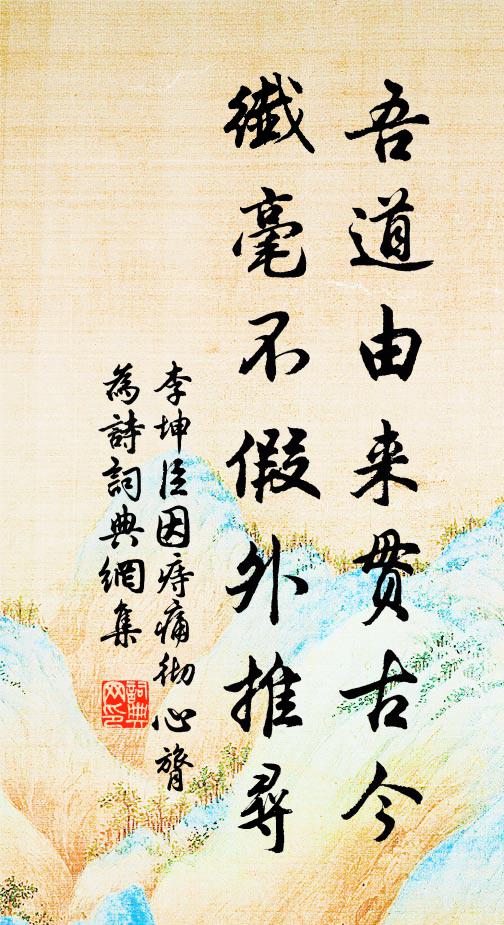 吾道由来贯古今
纖毫不假外推尋
李坤臣因痔痛彻心膂
為詩詞典網集
詞典
网印